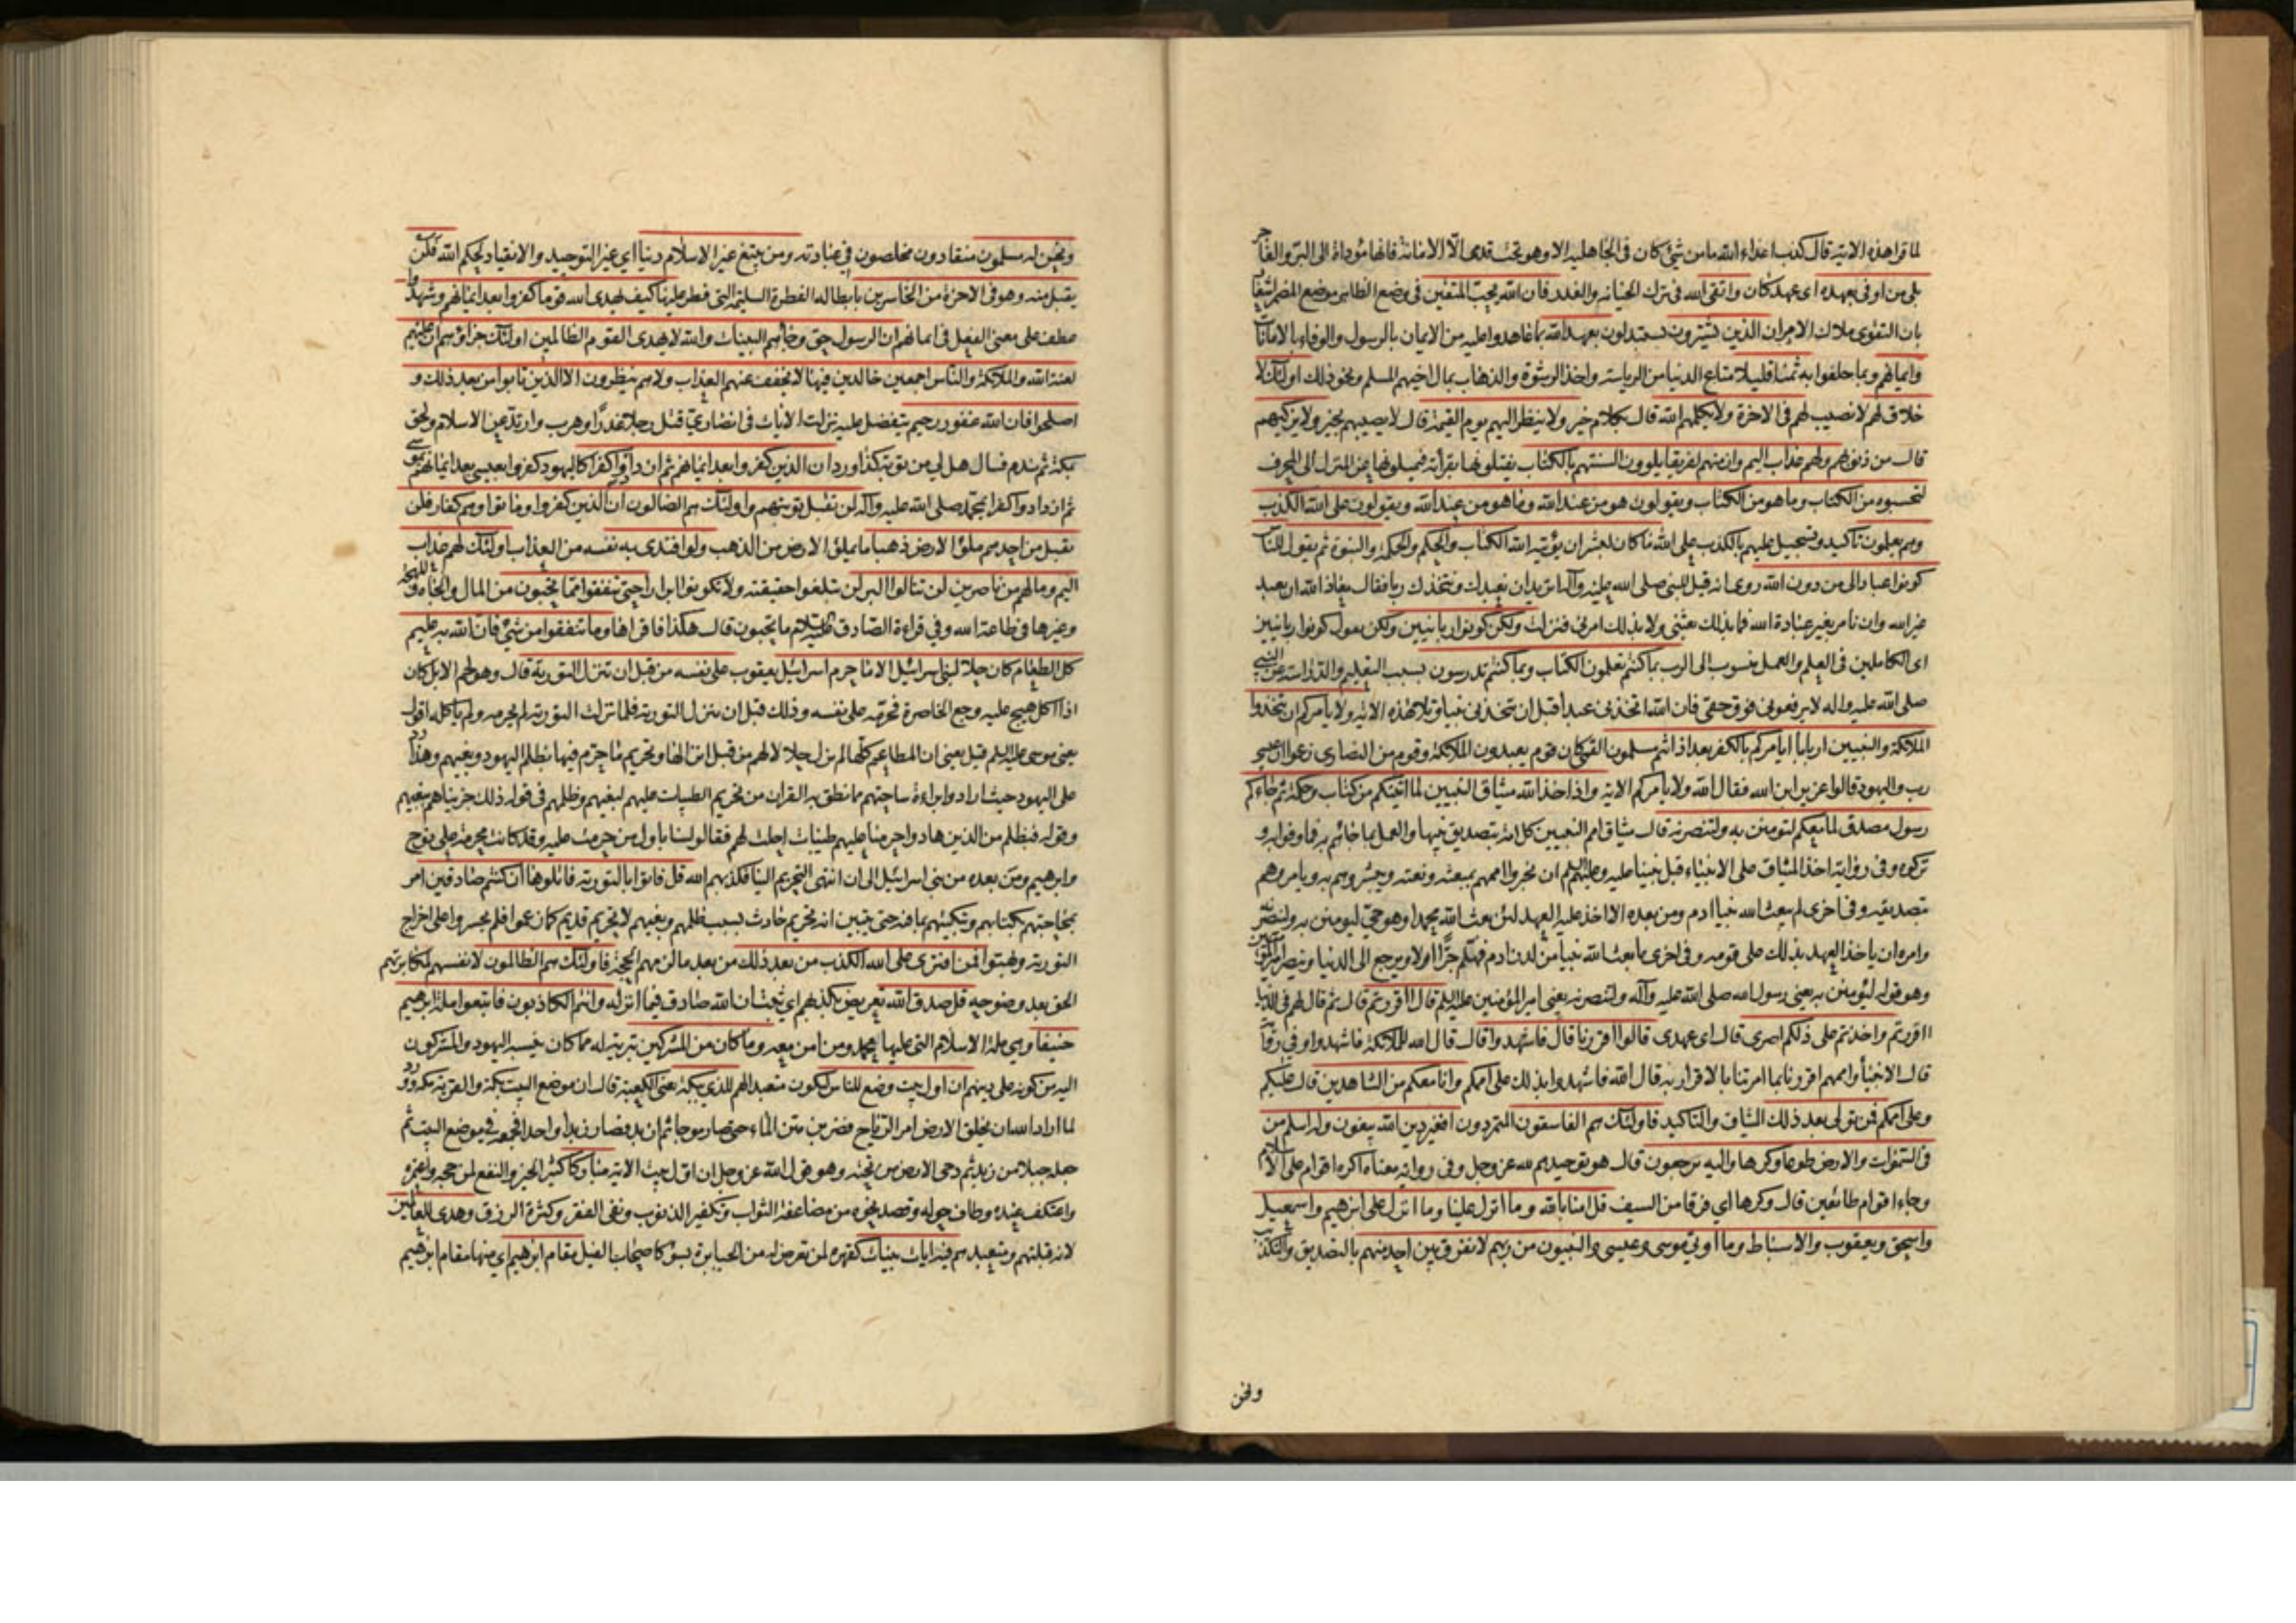 لما قرا هذه الاية قال كذب اعداء الله ما من شئ كان في الجاهلية الا وهو تحت قدمي الا الامانة فانها مؤداة الى البر والفاجر
بلى من اوفى بعهده اى عهد كان واتقى الله في ترك الخيانة والغدر فان الله يحب المتقين في وضع الظاهر موضع المضمر اشعار
بان التقوى ملاك الامر ان الذين يشترون يستبدلون بعهد الله بما عاهدوا عليه من الايمان بالرسول والوفاء بالامانات
وايمانهم وبما حلفوا به ثمنا قليلا متاع الدنيا من الرياسة واخذ الرشوة والذهاب بمال اخيهم المسلم ونحو ذلك اولئك لا
خلاق لهم لا نصيب لهم في الاخرة ولا يكلمهم الله قال بكلام خير ولا ينظر اليهم يوم القيمة قال لا يصيبهم بخير ولا يزكيهم
قال من ذنوبهم ولهم عذاب اليم وان منهم لفريقا يلوون السنتهم بالكتاب يفتلونها بقرائته فيميلونها عن المنزل الى المحرف
لتحسبوه من الكتاب وما هو من الكتاب ويقولون هو من عند الله وما هو من عند الله ويقولون على الله الكذب
وهم يعلمون تاكيد وتسجيل عليهم بالكذب على الله ما كان لبشر ان يؤتيه الله الكتاب والحكم والحكمة والنبوة ثم يقول للناس
كونوا عبادا لى من دون الله روى انه قيل للنبى صلى الله عليه وآله اتريد ان نعبدك ونتخذك ربا فقال معاذ الله ان يعبد
غير الله وان نامر بغير عبادة الله فما بذلك بعثنى ولا بذلك امرنى فنزلت ولكن كونوا ربانيين ولكن يقول كونوا ربانيين
اى الكاملين في العلم والعمل منسوب الى الرب بما كنتم تعلمون الكتاب وبما كنتم تدرسون بسبب التعليم والدراسة عن النبى
صلى الله عليه واله لا ترفعونى فوق حقى فان الله اتخذنى عبدا قبل ان يتخذنى نبيا وتلا هذه الاية ولا يامركم ان تتخذوا
الملائكة والنبيين اربابا ايأمركم بالكفر بعد اذ انتم مسلمون القمى كان قوم يعبدون الملائكة وقوم من النصارى زعموا ان عيسى
رب واليهود قالوا عزير ابن الله فقال الله ولا يأمركم الاية واذ اخذ الله ميثاق النبيين لما اتيتكم من كتاب وحكمة ثم جاءكم
رسول مصدق لما معكم لتومنن به ولتنصرنه قال ميثاق امم النبيين كل امة بتصديق نبيها والعمل بما جائهم به فما وفوا به و
تركوه وفى رواية اخذ الميثاق على الانبياء قبل نبينا عليه وعليهم السلم ان يخبروا اممهم بمبعثه ونعته ويبشروهم به ويامروهم
بتصديقه وفى اخرى لم يبعث الله نبيا ادم ومن بعده الا اخذ عليه العهد لئن بعث الله محمدا وهو حى ليومنن به ولينصرنه
وامره ان ياخذ العهد بذلك على قومه وفى اخرى ما بعث الله نبيا من لدن ادم فهلم جرا الا ويرجع الى الدنيا وينصر امير المؤمنين
وهو قوله لتؤمنن به يعنى رسول الله صلى الله عليه وآله ولتنصرنه يعنى امير المؤمنين عليه السلم قال ءاقررتم قال ثم قال لهم في الدنيا
ءاقررتم واخذتم على ذلكم اصرى قال اى عهدى قالوا اقررنا قال فاشهدوا قال قال الله للملائكة فاشهدوا وفى رواية
قال الانبيأ واممهم اقررنا بما امرتنا بالاقرار به قال الله فاشهدوا بذلك على اممكم وانا معكم من الشاهدين قال عليكم
وعلى اممكم فمن تولى بعد ذلك الميثاق والتاكيد فاولئك هم الفاسقون المتمردون افغير دين الله يبغون وله اسلم من
في السموات والارض طوعا وكرها واليه يرجعون قال هو توحيدهم لله عز وجل وفى رواية معناه اكره اقوام على الاسلام
وجاء اقوام طائعين قال وكرها اي فرقا من السيف قل امنا بالله وما انزل علينا وما انزل على ابرهيم واسمعيل
واسحق ويعقوب والاسباط وما اوتي موسى وعيسى والنبيون من ربهم لا نفرق بين احد منهم بالتصديق والتكذيب
ونحن
ونحن له مسلمون منقادون مخلصون في عبادته ومن يبتغ غير الاسلام دينا اي غير التوحيد والانقياد لحكم الله فلن
يقبل منه وهو في الاخرة من الخاسرين بابطاله الفطرة السليمة التى فطر عليها كيف يهدى الله قوما كفروا بعد ايمانهم وشهدوا
عطف على معنى الفعل في ايمانهم ان الرسول حق وجاءهم البينات والله لا يهدى القوم الظالمين اولئك جزاؤهم ان عليهم
لعنة الله والملائكة والناس اجمعين خالدين فيها لا يخفف عنهم العذاب ولا هم ينظرون الا الذين تابوا من بعد ذلك و
اصلحوا فان الله غفور رحيم يتفضل عليه نزلت الايات في انصارى قتل رجلا غدرا وهرب وارتد عن الاسلام ولحق
بمكة ثم ندم فسال هل لي من توبة كذا ورد ان الذين كفروا بعد ايمانهم ثم ازدادوا كفرا كاليهود كفروا بعيسى بعد ايمانهم بموسى
ثم ازدادوا كفرا بمحمد صلى الله عليه وآله لن تقبل توبتهم واولئك هم الضالون ان الذين كفروا وماتوا وهم كفار فلن
يقبل من احدهم ملؤ الارض ذهبا ما يملؤ الارض من الذهب ولو افتدى به نفسه من العذاب اولئك لهم عذاب
اليم وما لهم من ناصرين لن تنالوا البر لن تبلغوا حقيقته ولا تكونوا ابرارا حتى تنفقوا مما تحبون من المال والجاه والمهجة
وغيرها في طاعة الله وفي قراءة الصادق عليه السلام ما تحبون قال هكذا فاقراها وما تنفقوا من شئ فان الله به عليم
كل الطعام كان حلا لبنى اسرائيل الا ما حرم اسرائيل يعقوب على نفسه من قبل ان تنزل التورية قال وهو لحم الابل كان
اذا اكل هيج عليه وجع الخاصرة فحرمه على نفسه وذلك قبل ان ينزل التورية فلما نزلت التورية لم يحرمه ولم ياكله اقول
يعنى موسى عليه السلم قيل يعنى ان المطاعم كلها لم تزل حلالا لهم من قبل انزالها وتحريم ما حرم فيها بظلم اليهود وبغيهم وهذا رد
على اليهود حيث ارادوا براءة ساحتهم مما نطق به القران من تحريم الطيبات عليهم لبغيهم وظلمهم في قوله ذلك جزيناهم ببغيهم
وقوله فبظلم من الذين هادوا حرمنا عليهم طيبات احلت لهم فقالوا لسنا باول من حرمت عليه وقد كانت محرمة على نوح
وابرهيم ومن بعده من بنى اسرائيل الى ان انتهى التحريم الينا فكذبهم الله قل فاتوا بالتورية فاتلوها ان كنتم صادقين امر
بمحاجتهم بكتابهم وتبكيتهم بما فيه حتى يتبين انه تحريم حادث بسبب ظلمهم وبغيهم لا تحريم قديم كما زعموا فلم يجسروا على اخراج
التورية وبهتوا فمن افترى على الله الكذب من بعد ذلك من بعد ما لزمهم الحجة فاولئك هم الظالمون لانفسهم لمكابرتهم
الحق بعد وضوحه قل صدق الله تعريض بكذبهم اي ثبت ان الله صادق فيما انزله وانتم الكاذبون فاتبعوا ملة ابرهيم
حنيفا وهى ملة الاسلام التى عليها محمد ومن امن معه وما كان من المشركين تبرئة له مما كان ينسبه اليهود والمشركون
اليه من كونه على دينهم ان اول بيت وضع للناس ليكون متعبدا لهم للذي ببكة يعنى الكعبة قال ان موضع البيت بكة والقرية مكة وورد
لما اراد الله ان يخلق الارض امر الرياح فضربن متن الماء حتى صار موجا ثم ازبد فصار زبدا واحدا فجمعه في موضع البيت ثم
جعله جبلا من زبد ثم دحى الارض من تحته وهو قول الله عز وجل ان اول بيت الاية مباركا كثير الخير والنفع لمن حجه واعتمره و
واعتكف عنده وطاف حوله وقصد نحوه من مضاعفة الثواب وتكفير الذنوب ونفى الفقر وكثرة الرزق وهدى للعالمين
لانه قبلتهم ومتعبدهم فيه ايات بينات كقهره لمن تعرض له من الجبابرة بسوء كاصحاب الفيل مقام ابرهيم اي منها مقام ابرهيم